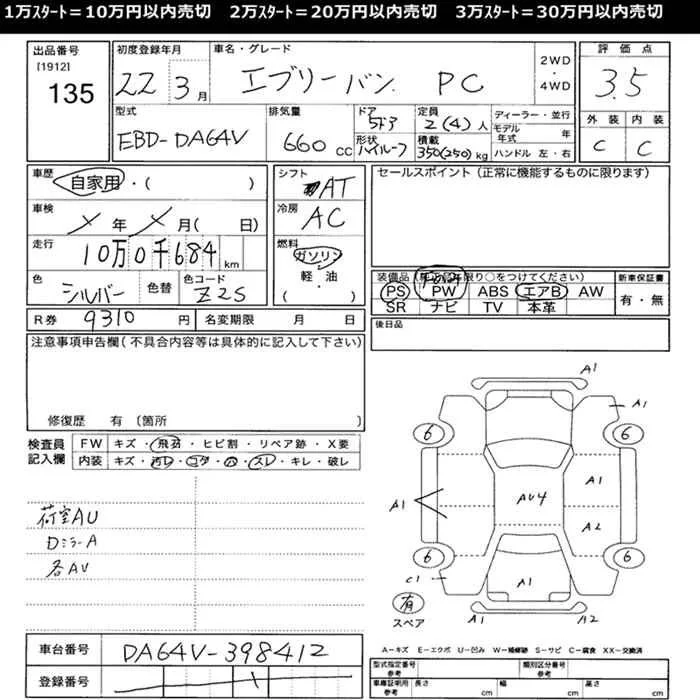 1万ｽﾀｰﾄ＝10万円以内売切　2万ｽﾀｰﾄ＝20万円以内売切　3万ｽﾀｰﾄ＝30万円以内売切
出品番号 [1912] 135
初度登録年月 22 3月
車名・グレード エブリーバン PC
2WD・4WD
評価点 3.5
外装 C 内装 C
型式 EBD-DA64V
排気量 660cc
ドア 5ドア
形状 ハイルーフ
定員 2(4)人
積載 350(250)kg
ディーラー・並行
モデル年式 年
ハンドル 左・右
車歴 自家用・( )
シフト AT
車検 メ年メ月( 日)
冷房 AC
走行 10万0千684km
燃料 ガソリン・軽油 ( )
色 シルバー 色替 色コード Z2S
R券 9310円 名変期限 月 日
セールスポイント（正常に機能するものに限ります）
装備品 限り○をつけてください)
新車保証書 有・無
PS PW ABS エアB AW
SR ナビ TV 本革
後日品
注意事項申告欄(不具合内容等は具体的に記入して下さい)
修復歴 有 (箇所 )
検査員記入欄
FW キズ・飛石・ヒビ割・リペア跡・X要
内装 キズ・汚レ・コゲ・穴・スレ・キレ・破レ
荷室AU
Dミラー A
各AU
A1
A1
6 6
A1
A1 AU4
A2
6 6
C1
A1
有
スペア
A1 A2
A－キズ E－エクボ U－凹み W－補修跡 S－サビ C－腐食 XX－交換済
車台番号 DA64V-398412
登録番号
型式指定番号 参考
類別区分番号 参考
車庫証明用 参考 長さ cm 幅 cm 高さ cm